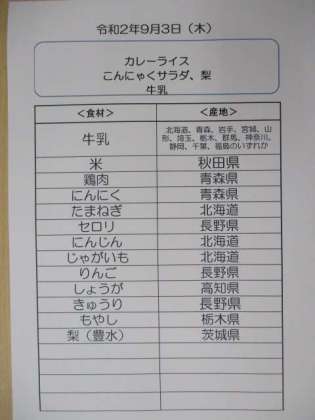 令和2年9月3日（木）
カレーライス
こんにゃくサラダ、梨
牛乳
＜食材＞ ＜産地＞
牛乳 北海道、青森、岩手、宮城、山
形、埼玉、栃木、群馬、神奈川、
静岡、千葉、福島のいずれか
米 秋田県
鶏肉 青森県
にんにく 青森県
たまねぎ 北海道
セロリ 長野県
にんじん 北海道
じゃがいも 北海道
りんご 長野県
しょうが 高知県
きゅうり 長野県
もやし 栃木県
梨（豊水） 茨城県